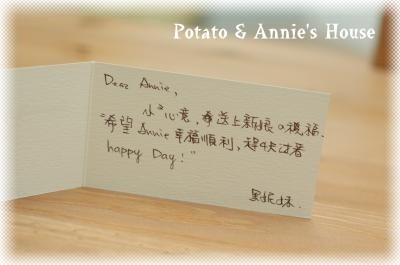 Potato & Annie's House
Dear Annie,
小小心意,奉送上新娘の祝福.
"希望Annie幸福順利, 快快过着
happy Day!"